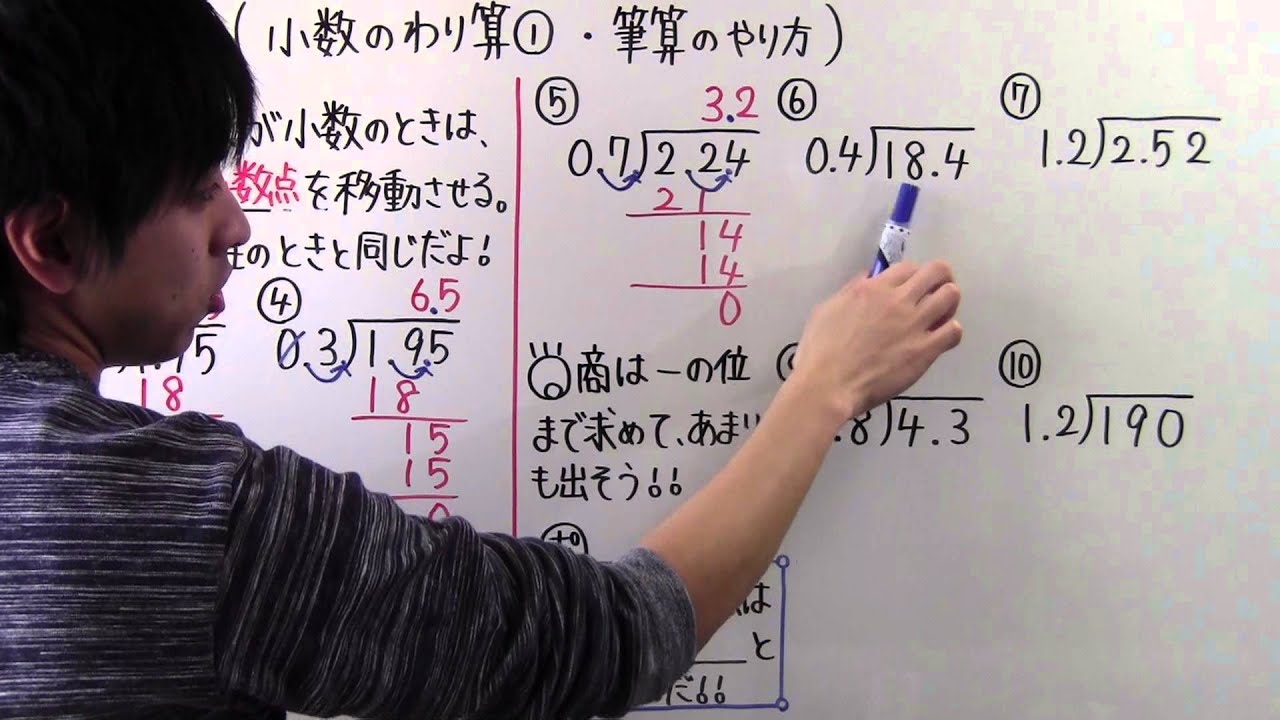 (小数のわり算①・筆算のやり方)
が小数のときは、
数点を移動させる。
のときと同じだよ!
④
6.5
0.3)1.95
18
15
15
0
5
18
⑤
3.2
0.7)2.24
21
14
14
0
⑥
0.4)18.4
⑦
1.2)2.52
商は一の位
まで求めて、あまり
も出そう!!
.8)4.3
⑩
1.2)190
は
と
だ!!